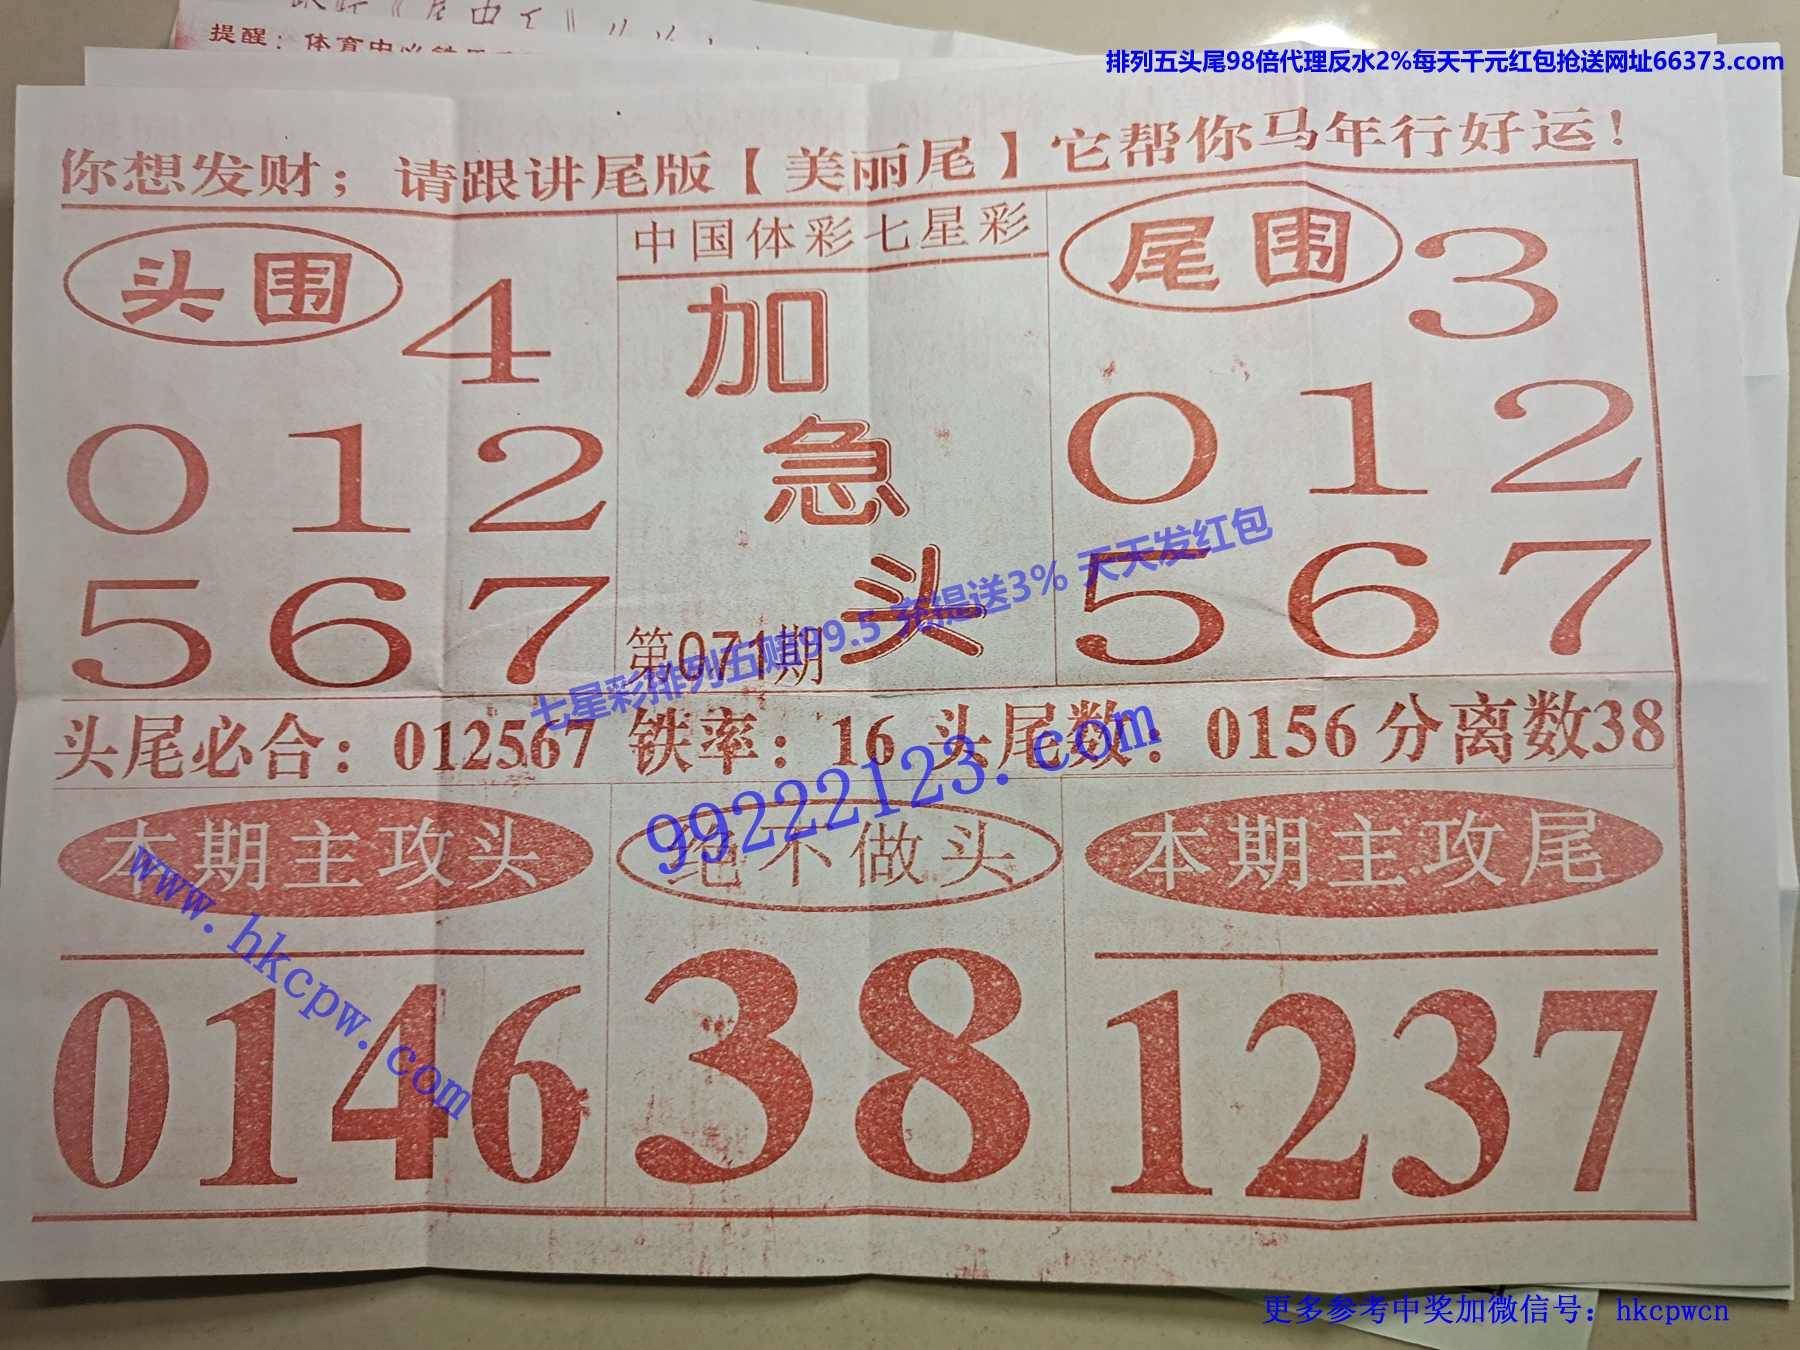 提醒：体育中心
排列五头尾98倍代理反水2%每天千元红包抢送网址66373.com
你想发财；请跟讲尾版【美丽尾】它帮你马年行好运！
头围
4
0 1 2
5 6 7
中国体彩七星彩
加
急
头
第071期
尾围
3
0 1 2
5 6 7
七星彩排列五赔99.5 充提送3% 天天发红包
头尾必合：012567 铁率：16 头尾数：0156 分离数38
99222123.com
本期主攻头
0146
绝不做头
38
本期主攻尾
1237
www.hkcpw.com
更多参考中奖加微信号：hkcpwcn